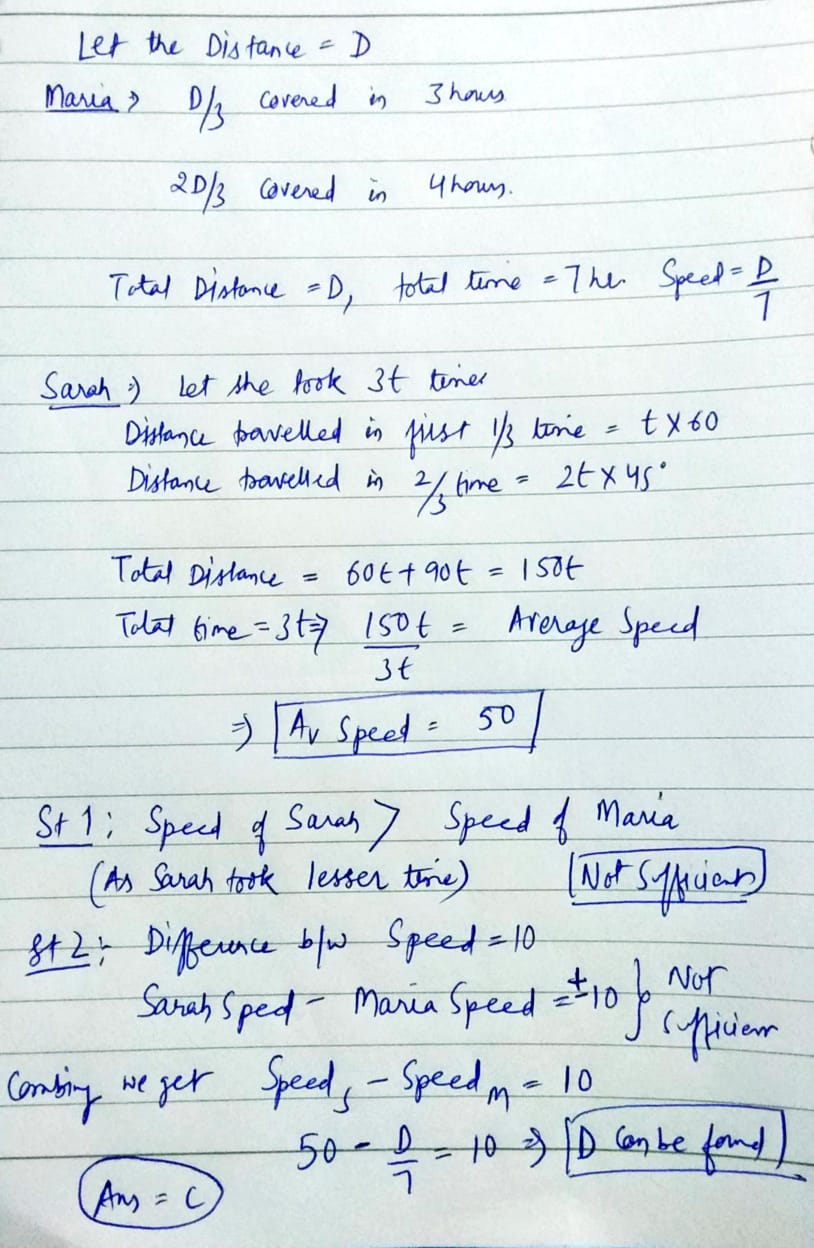 Let the Distance = D
Maria ⇒ D/3 covered in 3 hours
2D/3 covered in 4 hours.
Total Distance = D, total time = 7 hr. Speed = D/7
Sarah ⇒ Let she took 3t times
Distance travelled in first 1/3 time = t x 60
Distance travelled in 2/3 time = 2t x 45
Total Distance = 60t + 90t = 150t
Total time = 3t ⇒ 150t/3t = Average Speed
⇒ Av Speed = 50
St 1: Speed of Sarah > Speed of Maria
(As Sarah took lesser time) Not Sufficient
St 2: Difference b/w Speed = 10
Sarah Sped - Maria Speed = ±10 } Not Sufficient
Combing we get Speed S - Speed M = 10
50 - D/7 = 10 ⇒ D Can be found
Ans = C